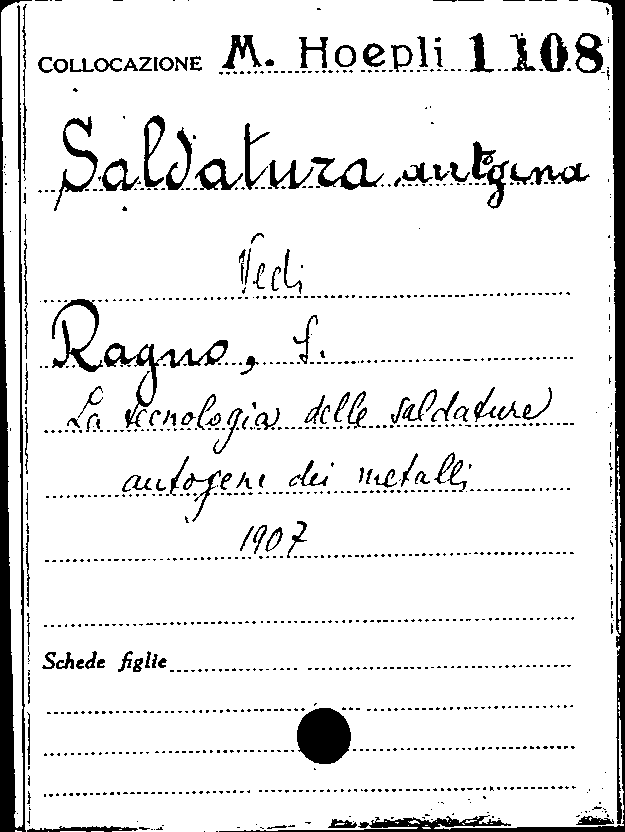 COLLOCAZIONE M. Hoepli 1108
Saldatura autogena
Vedi
Ragno, S.
La tecnologia delle saldature
autogene dei metalli
1907
Schede figlie